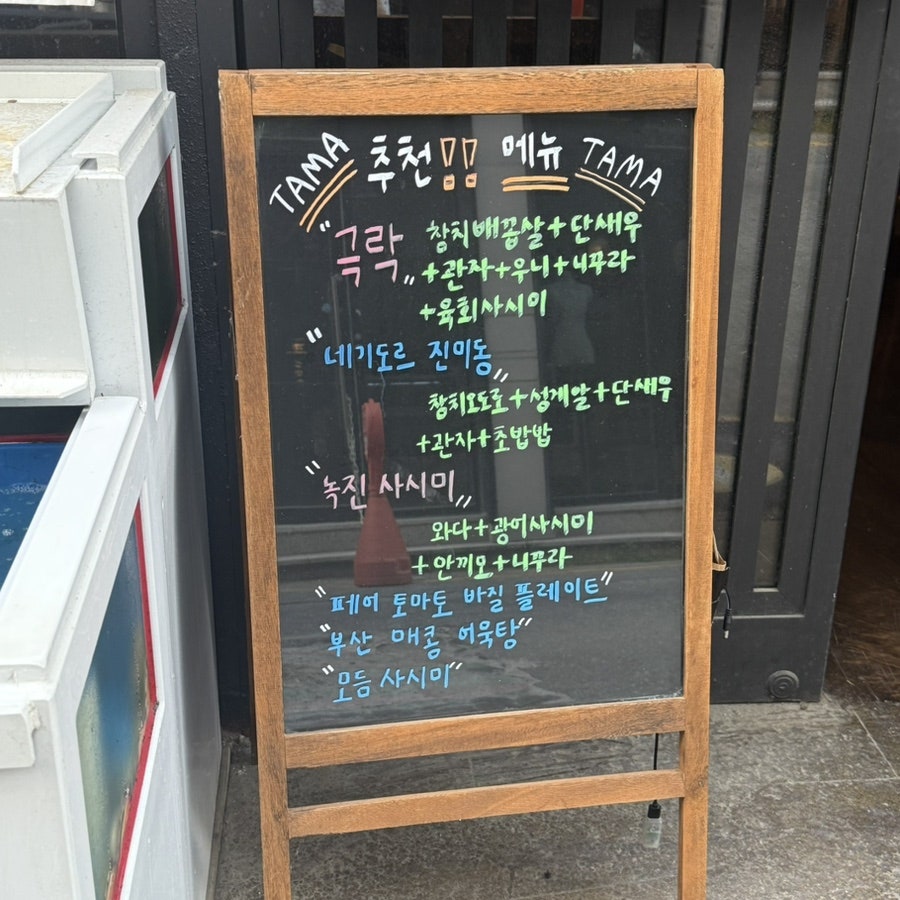 TAMA 추천!! 메뉴 TAMA
"극락" 참치배꼽살+단새우
+관자+우니+니꾸라
+육회사시미
"네기도르 진미동"
참치오도로+성게알+단새우
+관자+초밥밥
"녹진 사시미"
와다+광어사시미
+안끼모+니꾸라
"페어 토마토 바질 플레이트"
"부산 매콤 어묵탕"
"모듬 사시미"